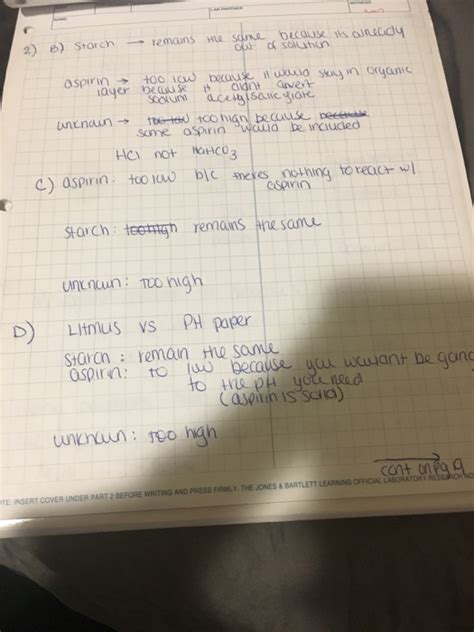 NAME
LAB PARTNER
2) B) Starch → remains the same because its already
out of solution
aspirin → too low because it would stay in organic
layer because it didnt convert
sodium acetylsalicylate
unknown → too low too high because because
some aspirin would be included
HCl not NaHCO3
C) aspirin: too low b/c theres nothing to react w/
aspirin
starch: too high remains the same
unknown: too high
D) Litmus vs PH paper
starch: remain the same
aspirin: to low because you wouldnt be going
to the pH you need
(aspirin is solid)
unknown: too high
cont on pg 9
TE: INSERT COVER UNDER PART 2 BEFORE WRITING AND PRESS FIRMLY. THE JONES & BARTLETT LEARNING OFFICIAL LABORATORY RESEARCH NO